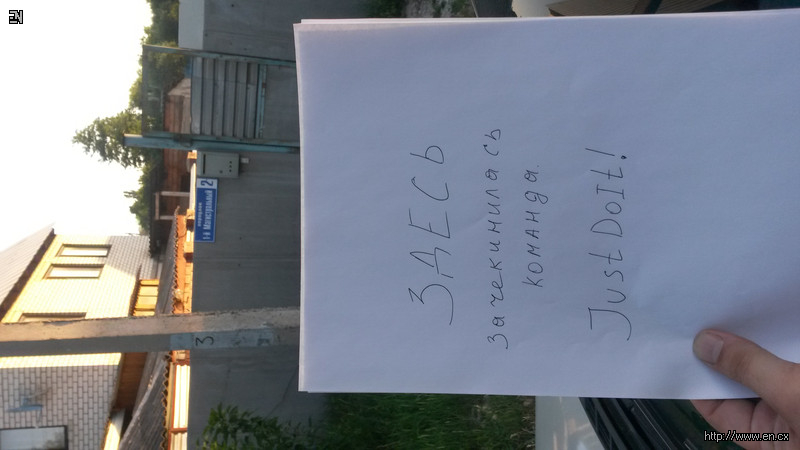 ЗДЕСЬ
зачекинилась
команда.
JustDoIt!
переулок
1-й Магистральный 2
3
EN
http://www.en.cx